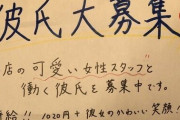 彼氏大募集
店の可愛い女性スタッフと
働く彼氏を募集中です。
時給!! 1020円+彼女のかわいい笑顔!